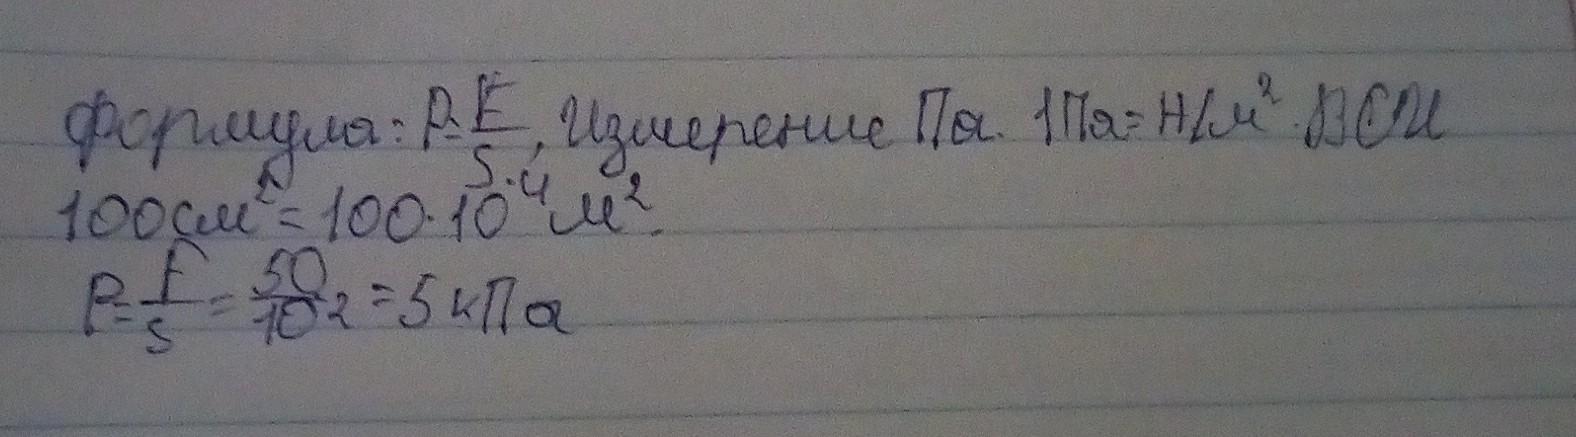 формула: P=F/S, Измерение Па. 1Па=Н/м². В СИ
100см²=100·10⁻⁴м².
P=F/S=50/10⁻²=5кПа